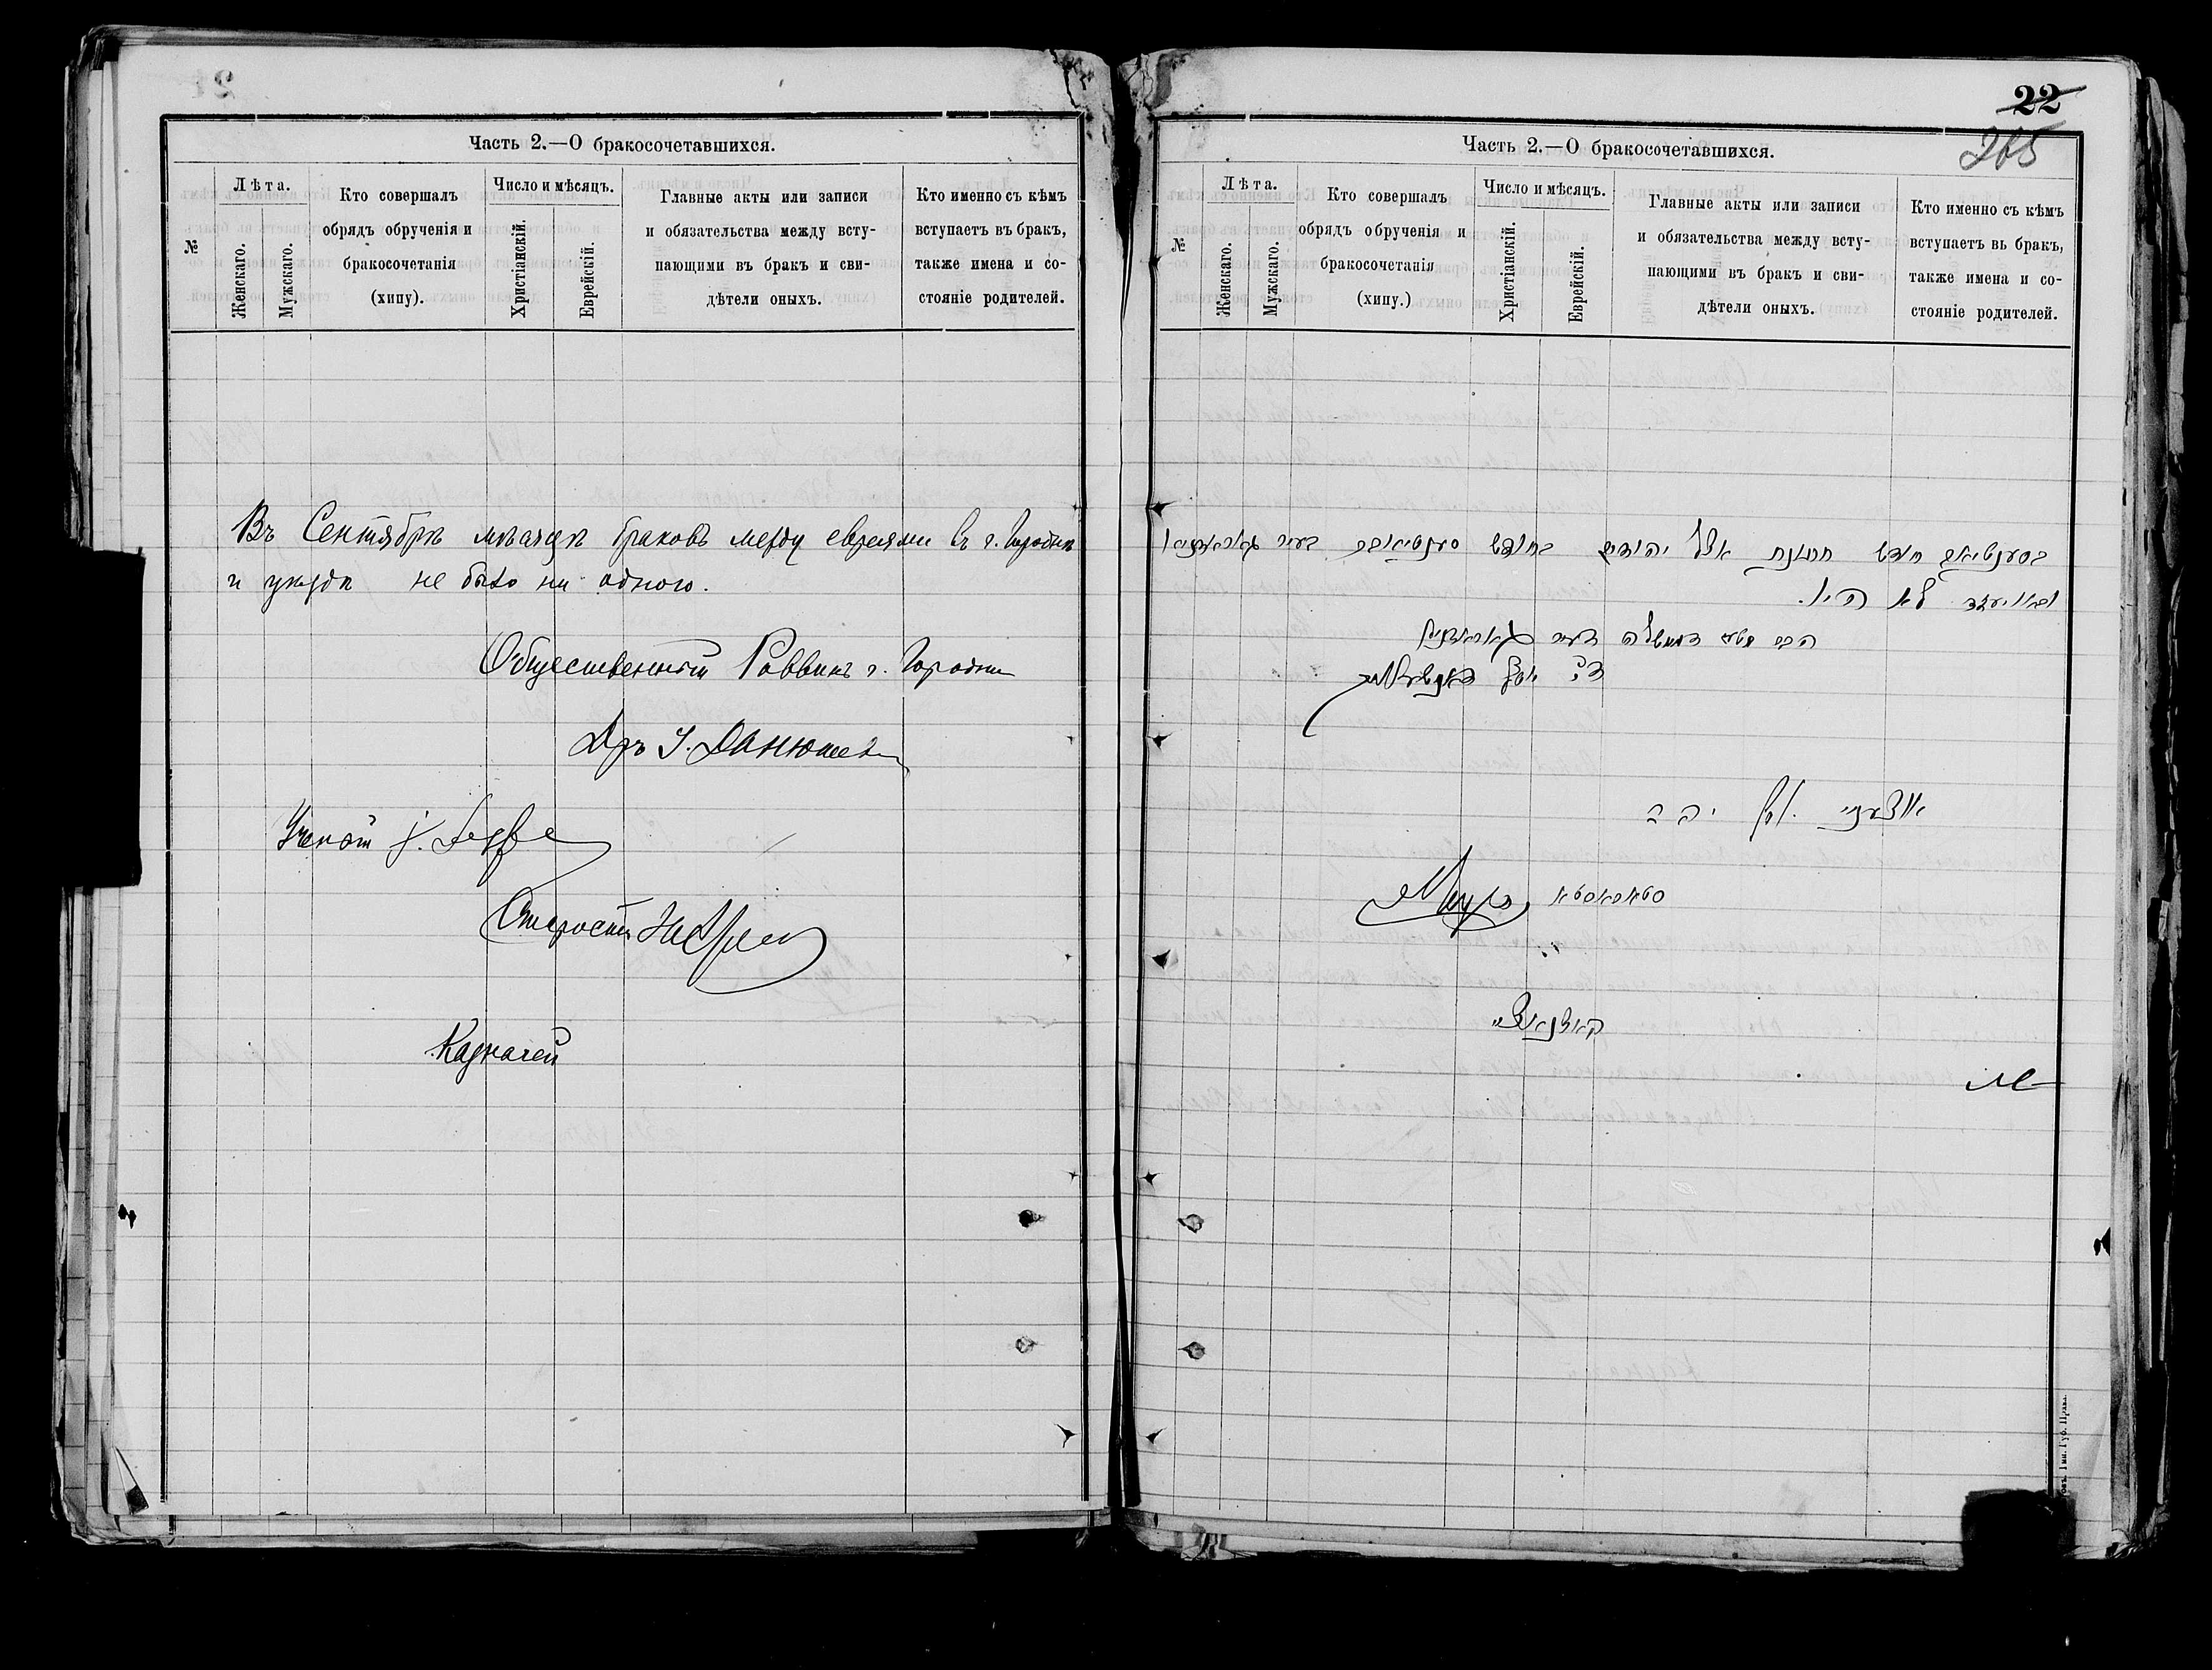 Часть 2.—О бракосочетавшихся.
№
Лѣта.
Женскаго.
Мужскаго.
Кто совершалъ
обрядъ обрученія и
бракосочетанія
(хипу).
Число и мѣсяцъ.
Христіанскій.
Еврейскій.
Главные акты или записи
и обязательства между всту-
пающими въ бракъ и сви-
дѣтели оныхъ.
Кто именно съ кѣмъ
вступаетъ въ бракъ,
также имена и со-
стояніе родителей.
Въ Сентябрѣ мѣсяцѣ браковъ между евреями въ г. Городнѣ
и уѣздѣ не было ни одного.
Общественный Раввинъ г. Городни
Дръ
Ученый
Староста
Казначей
22
265
Часть 2.—О бракосочетавшихся.
№
Лѣта.
Женскаго.
Мужскаго.
Кто совершалъ
обрядъ обрученія и
бракосочетанія
(хипу.)
Число и мѣсяцъ.
Христіанскій.
Еврейскій.
Главные акты или записи
и обязательства между всту-
пающими въ бракъ и сви-
дѣтели оныхъ.
Кто именно съ кѣмъ
вступаетъ въ бракъ,
также имена и со-
стояніе родителей.
חודש חתונת אצל יהודים בחודש בעיר
לא היו.
הרב מטעם הממשלה דעיר
סטאראסטא
קאזנאצײ